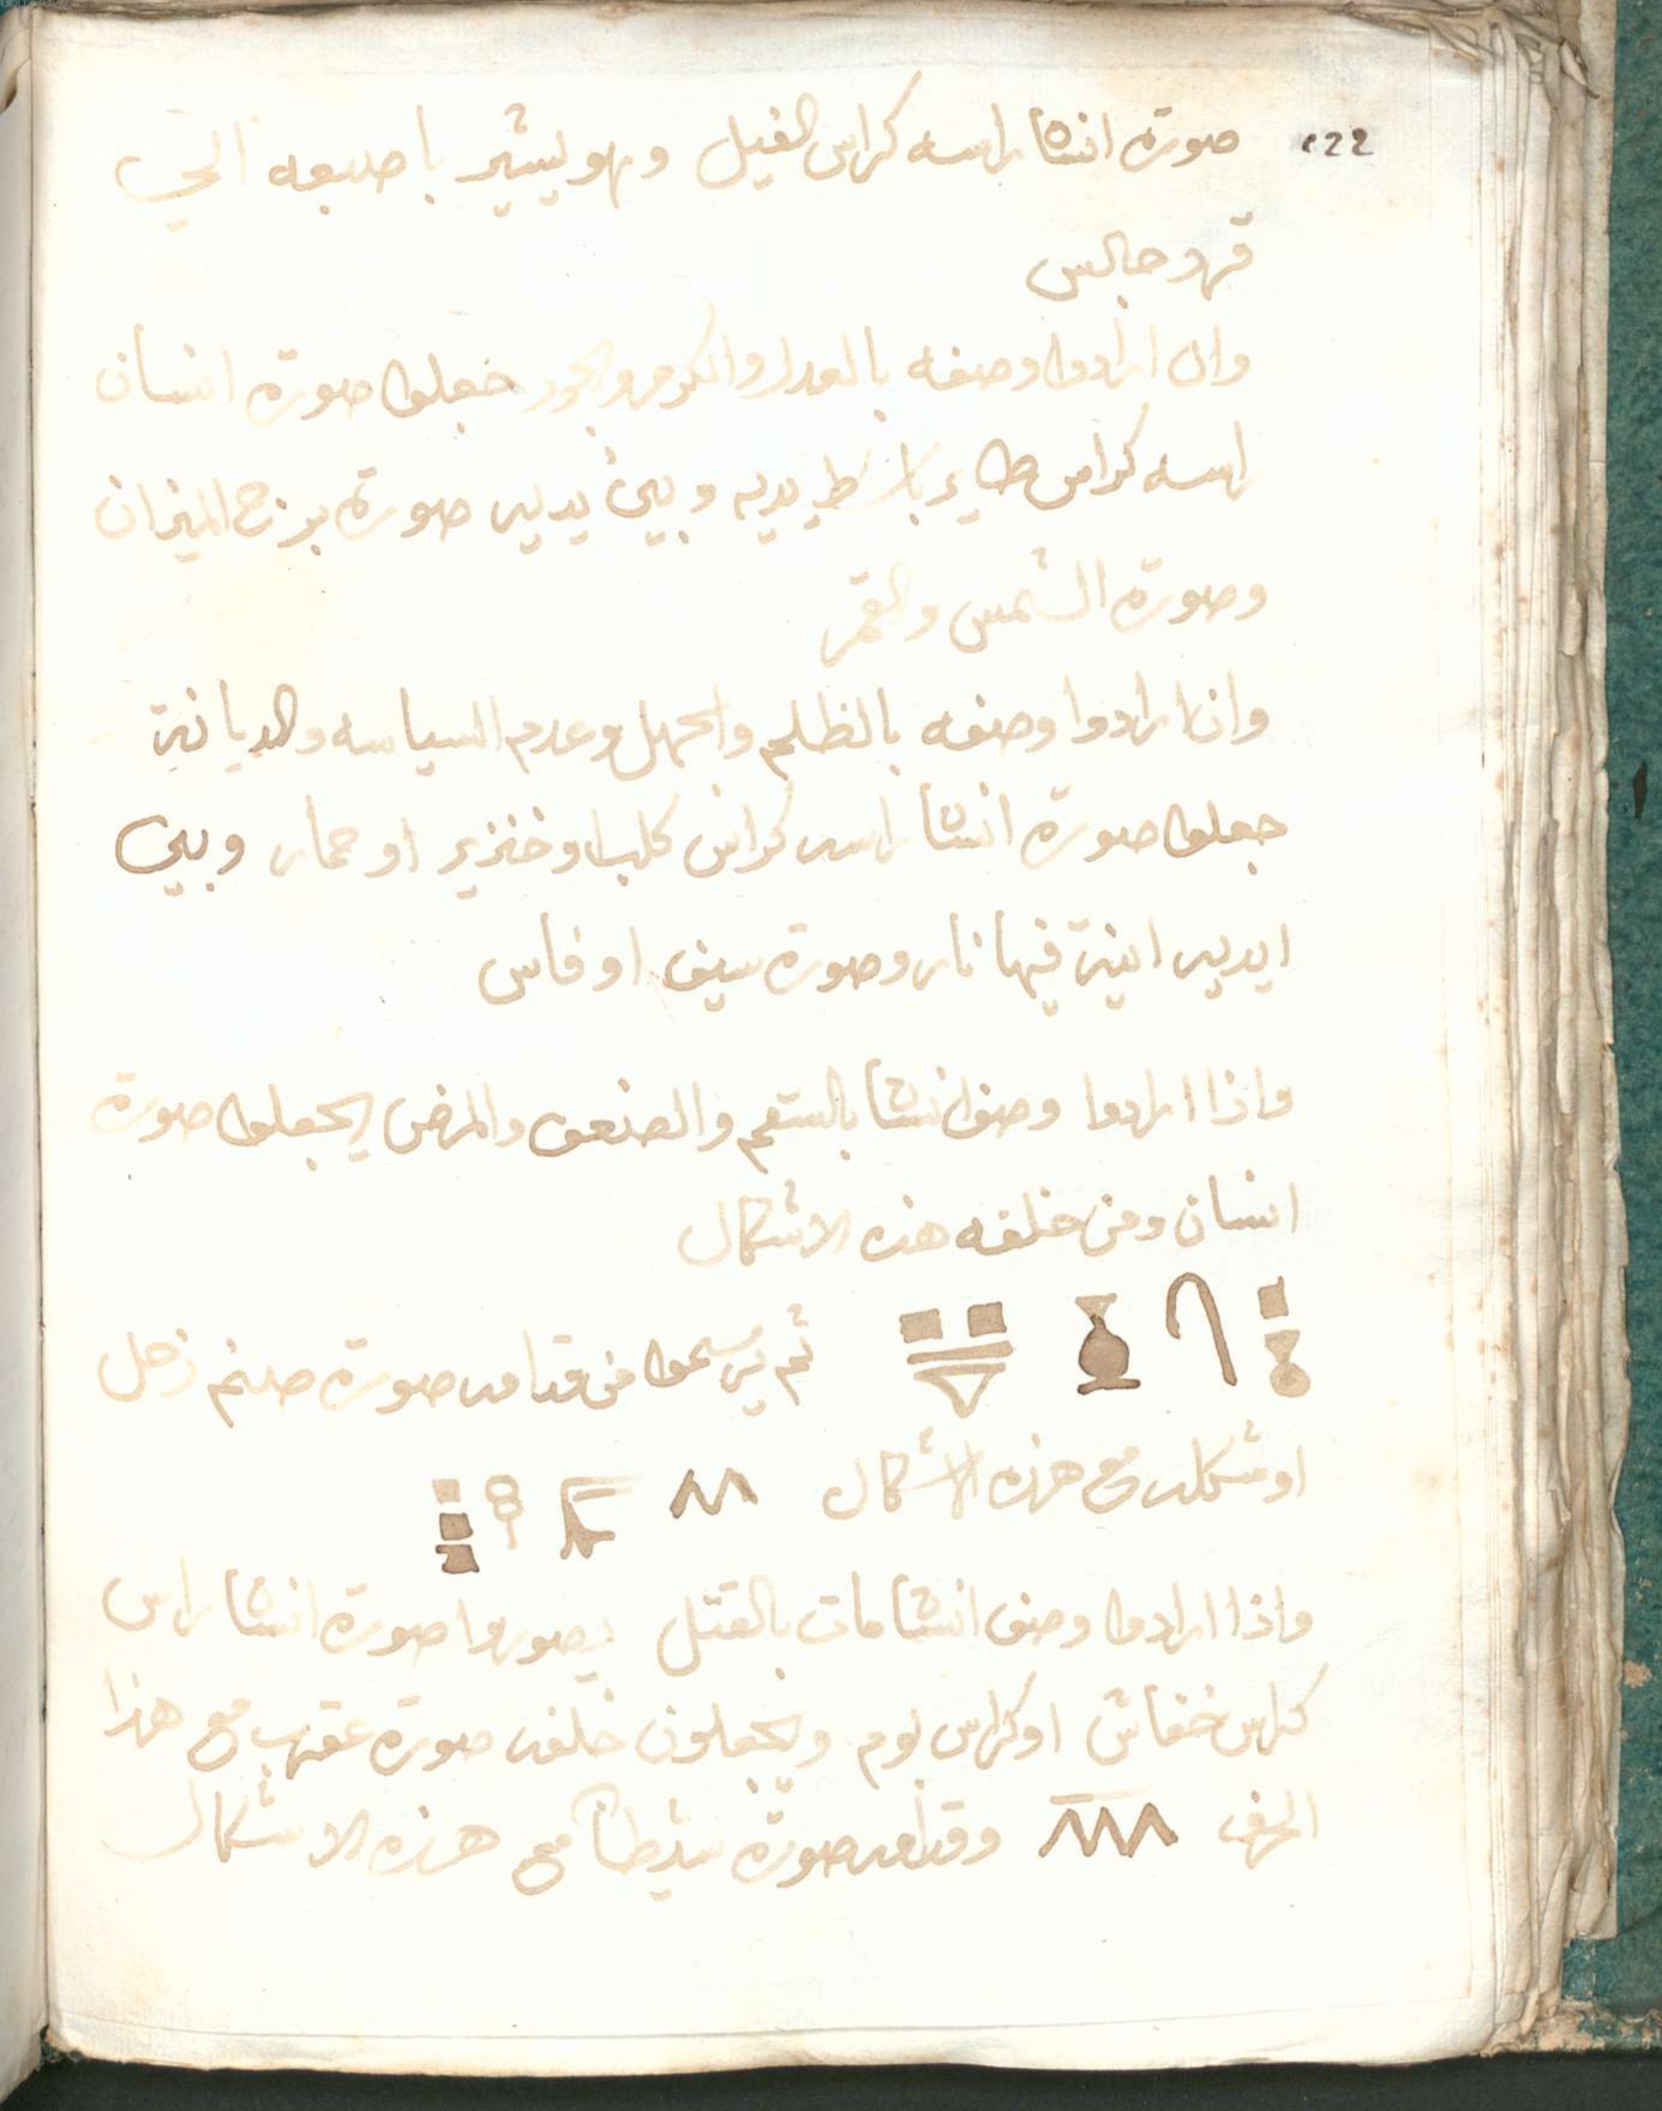 صورة انشا راسه كراس الفيل وهو يشير باصبعه الي
قرد جالس
وان ارادوا وصفه بالعدل والكرم والجود جعلوا صورة انسان
راسه كراس طاير باسط يديه وبين يديه صورة برج الميزان
وصورة الشمس والقمر
وان ارادوا وصفه بالظلم والجهل وعدم السياسه والديانة
جعلوا صورة انشا راسه كراس كلب او خنزير او حمار وبين
ايديه انية فيها نار وصورة سيف او فاس
واذا ارادوا وصف انشا بالسقم والضعف والمرض يجعلوا صورة
انسان ومن خلفه هذه الاشكال
ثم يرسموا من قدامه صورة صنم زحل
او شكله مع هذه الاشكال
واذا ارادوا وصف انشا مات بالقتل يصوروا صورة انشا راس
كراس خفاش او كراس بوم ويجعلون خلفه صورة عقرب مع هذا
الحرف وقدامه صورة شيطانا مع هذه الاشكال